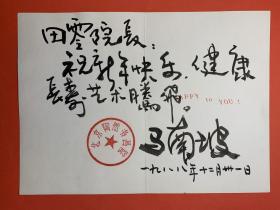 田雲院長:
祝新年快乐,健康
長寿 艺术騰飛。
HAPPY to YOU!
马南坡
一九八八年十二月卅一日